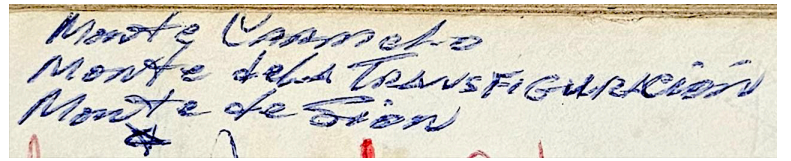 Monte Carmelo
Monte de la TRANSFIGURACIÓN
Monte de Sion